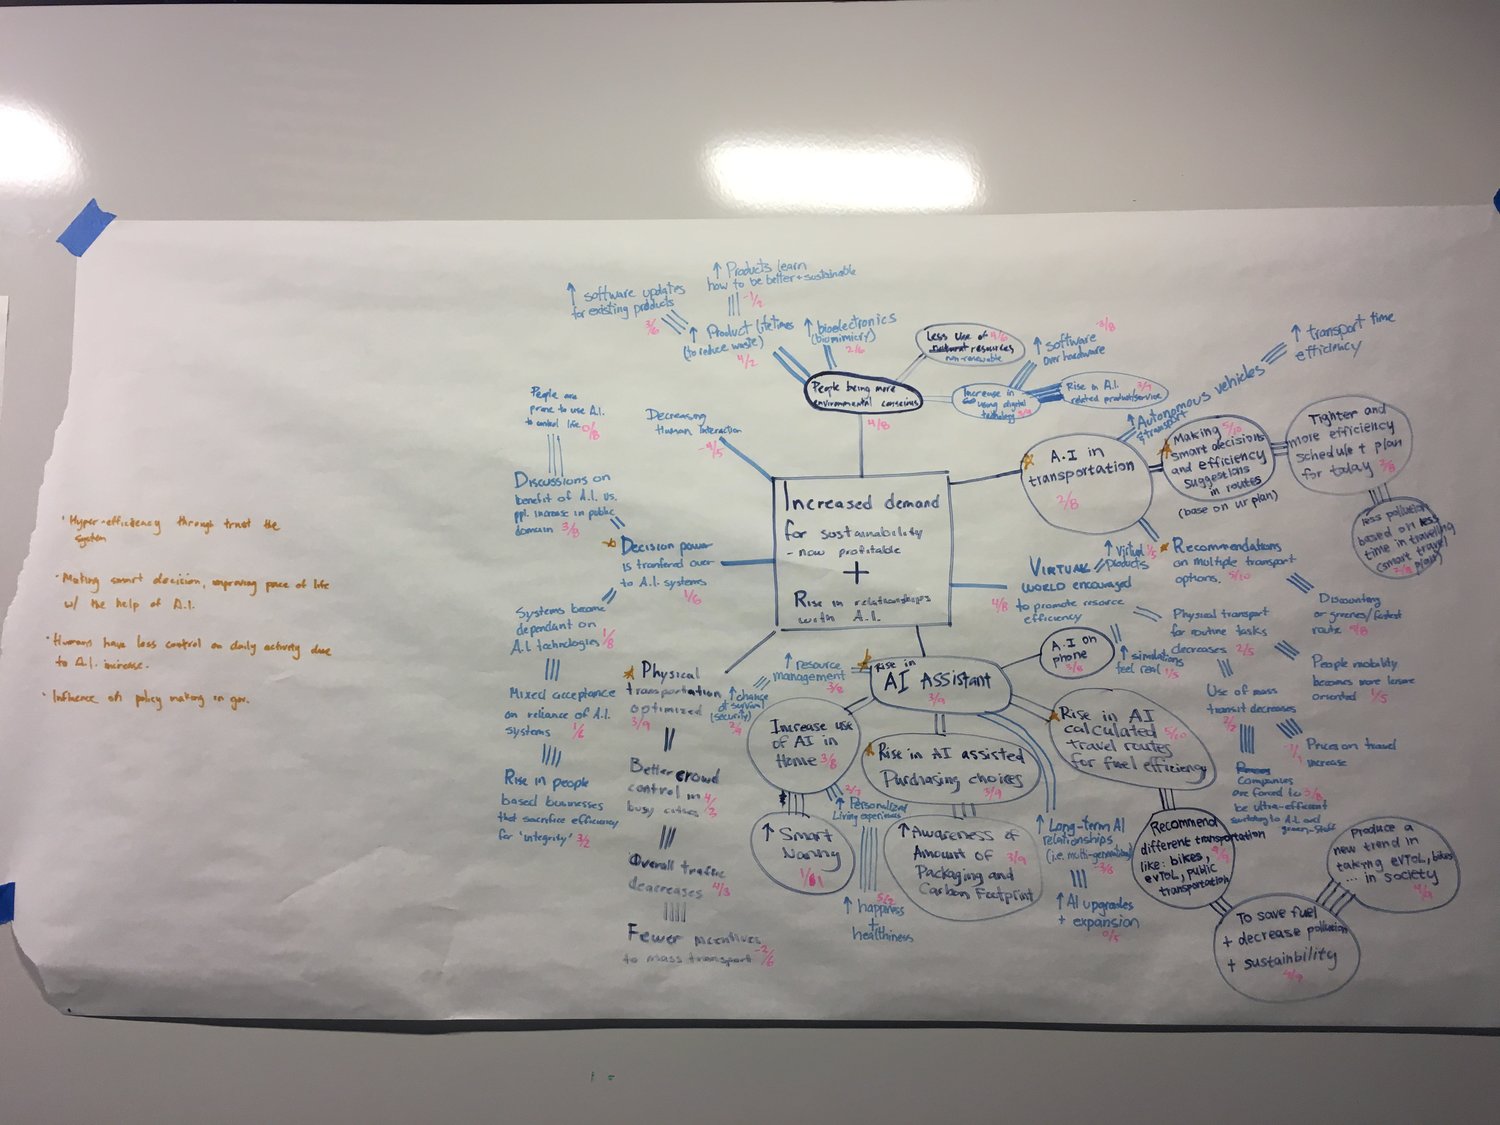 · Hyper-efficiency through trust the
system
· Making smart decision, improving pace of life
w/ the help of A.I.
· Humans have less control on daily activity due
to A.I. increase.
· Influence on policy making in gov.
↑ software updates
for existing products
3/6
↑ Products learn
how to be better + sustainable
-1/2
↑ Product lifetimes
(to reduce waste)
4/2
↑ bioelectronics
(biomimicry)
2/6
Less use of 4/6
resources
non-renewable
↑ software
over hardware
-3/8
People being more
environmental conscious
4/8
Increase in
using digital
technology
Rise in A.I. 3/9
related product/service
People are
prone to use A.I.
to control life 0/8
Decreasing
Human Interaction
-4/5
Discussions on
benefit of A.I. vs.
ppl. increase in public
domain 3/8
Decision power
is tranfered over
to A.I. systems
1/6
Systems become
dependant on
A.I. technologies 1/8
Mixed acceptance
on reliance of A.I.
systems 1/6
Rise in people
based businesses
that sacrifice efficiency
for 'integrity' 3/2
Increased demand
for sustainability
- now profitable
+
Rise in relationships
with A.I.
A.I in
transportation
2/8
↑ Autonomous vehicles
transport
↑ transport time
efficiency
Making 5/10
smart decisions
and efficiency
suggestions
in routes
(base on ur plan)
Tighter and
more efficiency
schedule + plan
for today 3/8
less pollution
based on less
time in travelling
(smart travel
plan)
Virtual
world encouraged
4/8 to promote resource
efficiency
↑ Virtual 1/5
products
↑ simulations
feel real 1/5
Recommendations
on multiple transport
options. 5/10
Discounting
or greenes/fastest
route 9/8
Physical transport
for routine tasks
decreases 2/5
People mobility
becomes more leisure
oriented 1/5
Use of mass
transit decreases
2/2
Prices on travel
increase
Companies
are forced to
be ultra-efficient
A.I. and
green-stuff
Physical
transportation
optimized
3/9
Better crowd
control in 4/3
busy cities
Overall traffic
decreases 4/3
Fewer incentives
to mass transport -2/6
Rise in
AI Assistant
3/9
A.I on
phone
3/8
↑ resource
management 3/8
↑ chance
of survival
(security)
Increase use
of AI in
Home 3/8
↑ Smart
Nanny
↑ Personalized
Living experience
↑ happiness
+
healthiness
Rise in AI assisted
Purchasing choices
3/9
↑ Awareness of
Amount of 3/9
Packaging and
Carbon Footprint
↑ Long-term AI
relationships
(i.e. multi-generational)
-3/8
↑ AI upgrades
+ expansion
0/5
Rise in AI
calculated 5/10
travel routes
for fuel efficiency
Recommend
different transportation
like: bikes,
eVTOL, public
transportation
To save fuel
+ decrease pollution
+ sustainbility
Produce a
new trend in
taking eVTOL, bikes
... in society
4/9